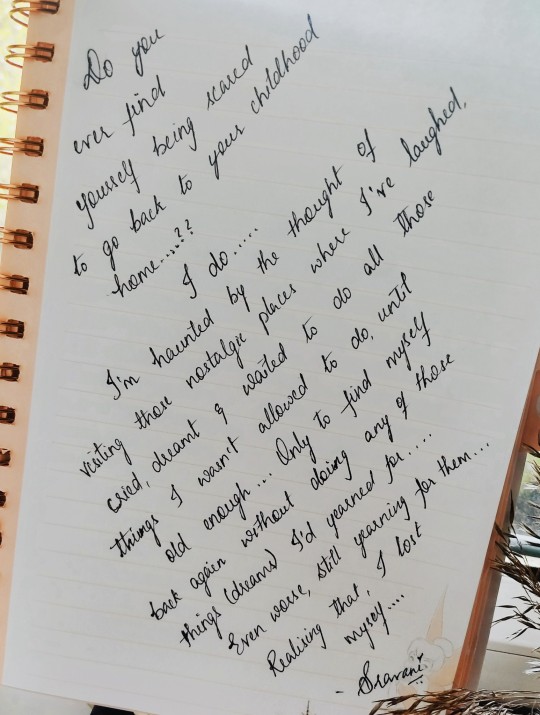 Do you
ever find
yourself being scared
to go back to your childhood
home.....??
I do.....
I'm haunted by the thought of
visiting those nostalgic places where I've laughed,
cried, dreamt & waited to do all those
things I wasn't allowed to do, until
old enough... Only to find myself
back again without doing any of those
things (dreams) I'd yearned for.....
Even worse, still yearning for them...
Realising that, I lost
myself....
- Sravani